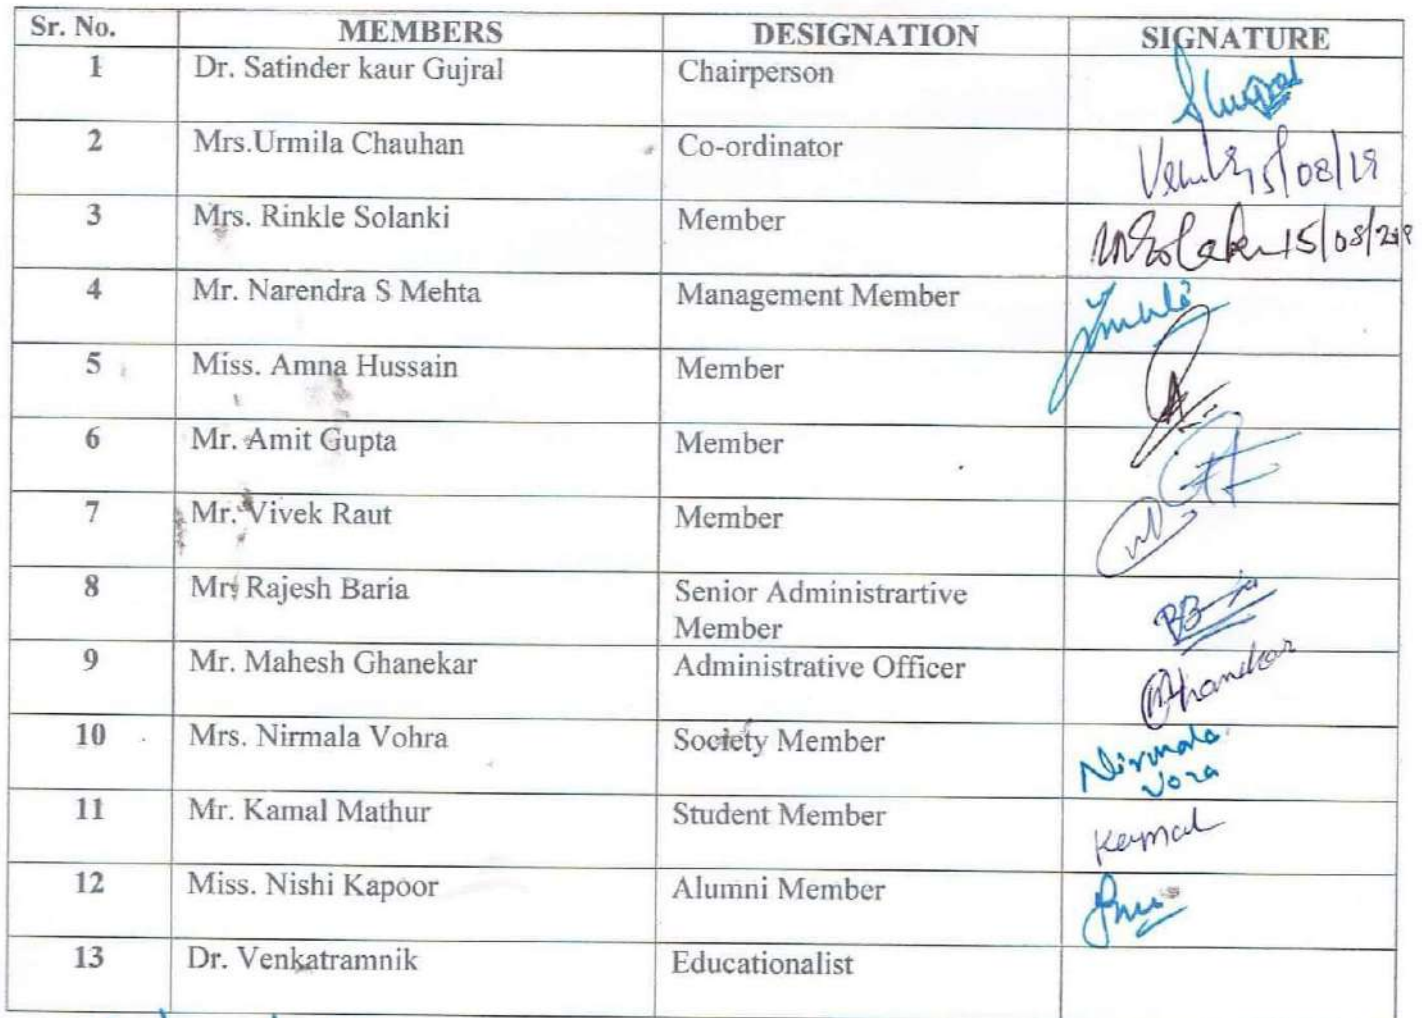 Sr. No. MEMBERS DESIGNATION SIGNATURE
1 Dr. Satinder kaur Gujral Chairperson
2 Mrs.Urmila Chauhan Co-ordinator 15/08/19
3 Mrs. Rinkle Solanki Member 15/08/2019
4 Mr. Narendra S Mehta Management Member
5 Miss. Amna Hussain Member
6 Mr. Amit Gupta Member
7 Mr. Vivek Raut Member
8 Mr. Rajesh Baria Senior Administrartive
Member
9 Mr. Mahesh Ghanekar Administrative Officer Ghanekar
10 Mrs. Nirmala Vohra Society Member Nirmala
Vora
11 Mr. Kamal Mathur Student Member Kamal
12 Miss. Nishi Kapoor Alumni Member
13 Dr. Venkatramnik Educationalist